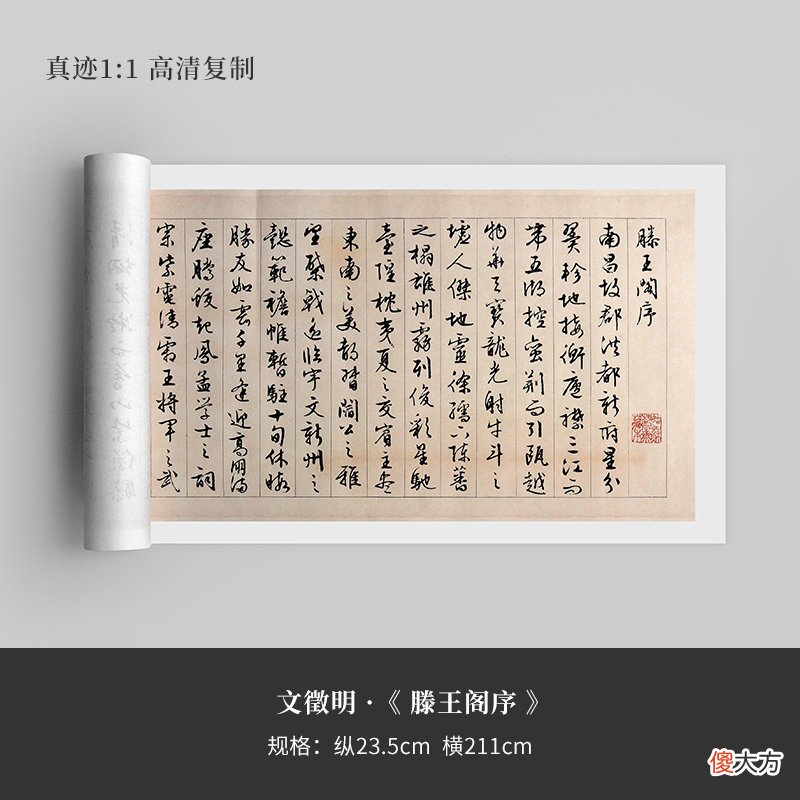 真迹1:1 高清复制
滕王閣序
南昌故郡洪都新府星分
翼軫地接衡廬襟三江而
帶五湖控蛮荊而引甌越
物華天寶龍光射牛斗之
墟人傑地靈徐孺下陳蕃
之榻雄州霧列俊彩星馳
臺隍枕夷夏之交賓主盡
東南之美都督閻公之雅
望棨戟遙臨宇文新州之
懿範襜帷暫駐十旬休暇
勝友如雲千里逢迎高朋滿
座騰蛟起鳳孟学士之詞
宗紫電清霜王將軍之武
文徵明·《 滕王阁序 》
规格：纵23.5cm 横211cm
傻大方